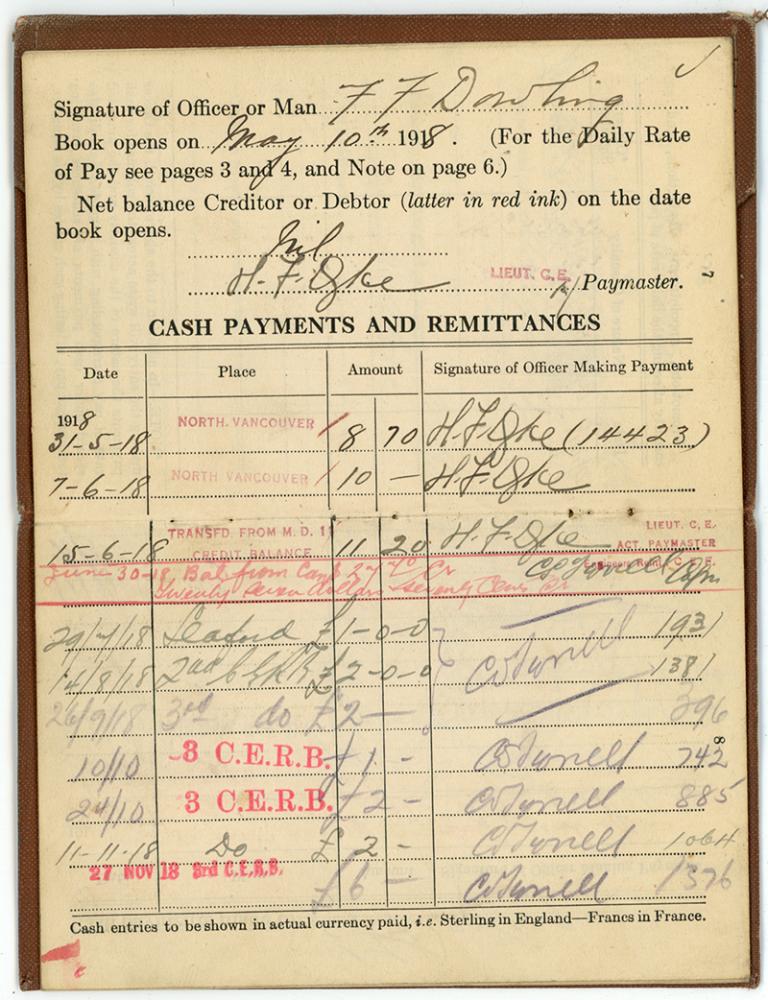 Signature of Officer or Man F F Dowling
Book opens on May 10th 1918. (For the Daily Rate
of Pay see pages 3 and 4, and Note on page 6.)
Net balance Creditor or Debtor (latter in red ink) on the date
book opens.
Nil
H. F. Oke LIEUT. C.E. Paymaster.
7
CASH PAYMENTS AND REMITTANCES
Date Place Amount Signature of Officer Making Payment
1918
31-5-18 NORTH VANCOUVER 8 70 H. F. Oke (14423)
7-6-18 NORTH VANCOUVER 10 — H. F. Oke
TRANSFD. FROM M. D. 11 LIEUT. C. E.
15-6-18 CREDIT BALANCE 11 20 H. F. Oke ACT. PAYMASTER
June 30-18 Bal from Can $ 27 70 Cr Capn
Twenty Seven dollars seventy Cents Cr
29/7/18 Seaford £1-0-0 1931
14/8/18 2nd CERB £2-0-0 1381
26/9/18 3rd do £2 — 396
10/10 3 C.E.R.B. £1 - 742
8
24/10 3 C.E.R.B. £2 - 885
11-11-18 Do £ 2 - 1064
27 NOV 18 3rd C.E.R.B. £6 — 1376
Cash entries to be shown in actual currency paid, i.e. Sterling in England—Francs in France.